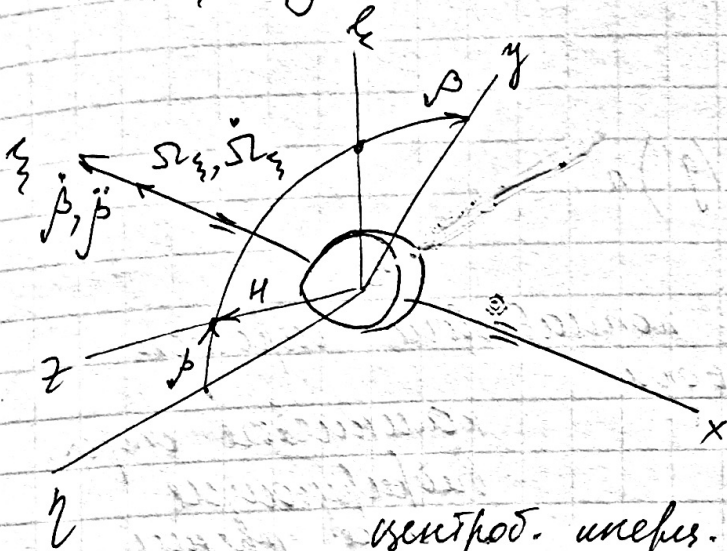 ζ
β
y
ξ
Ω_ξ, Ω̇_ξ
β̇, β̈
H
z
β
x
η
центроб. инерц.